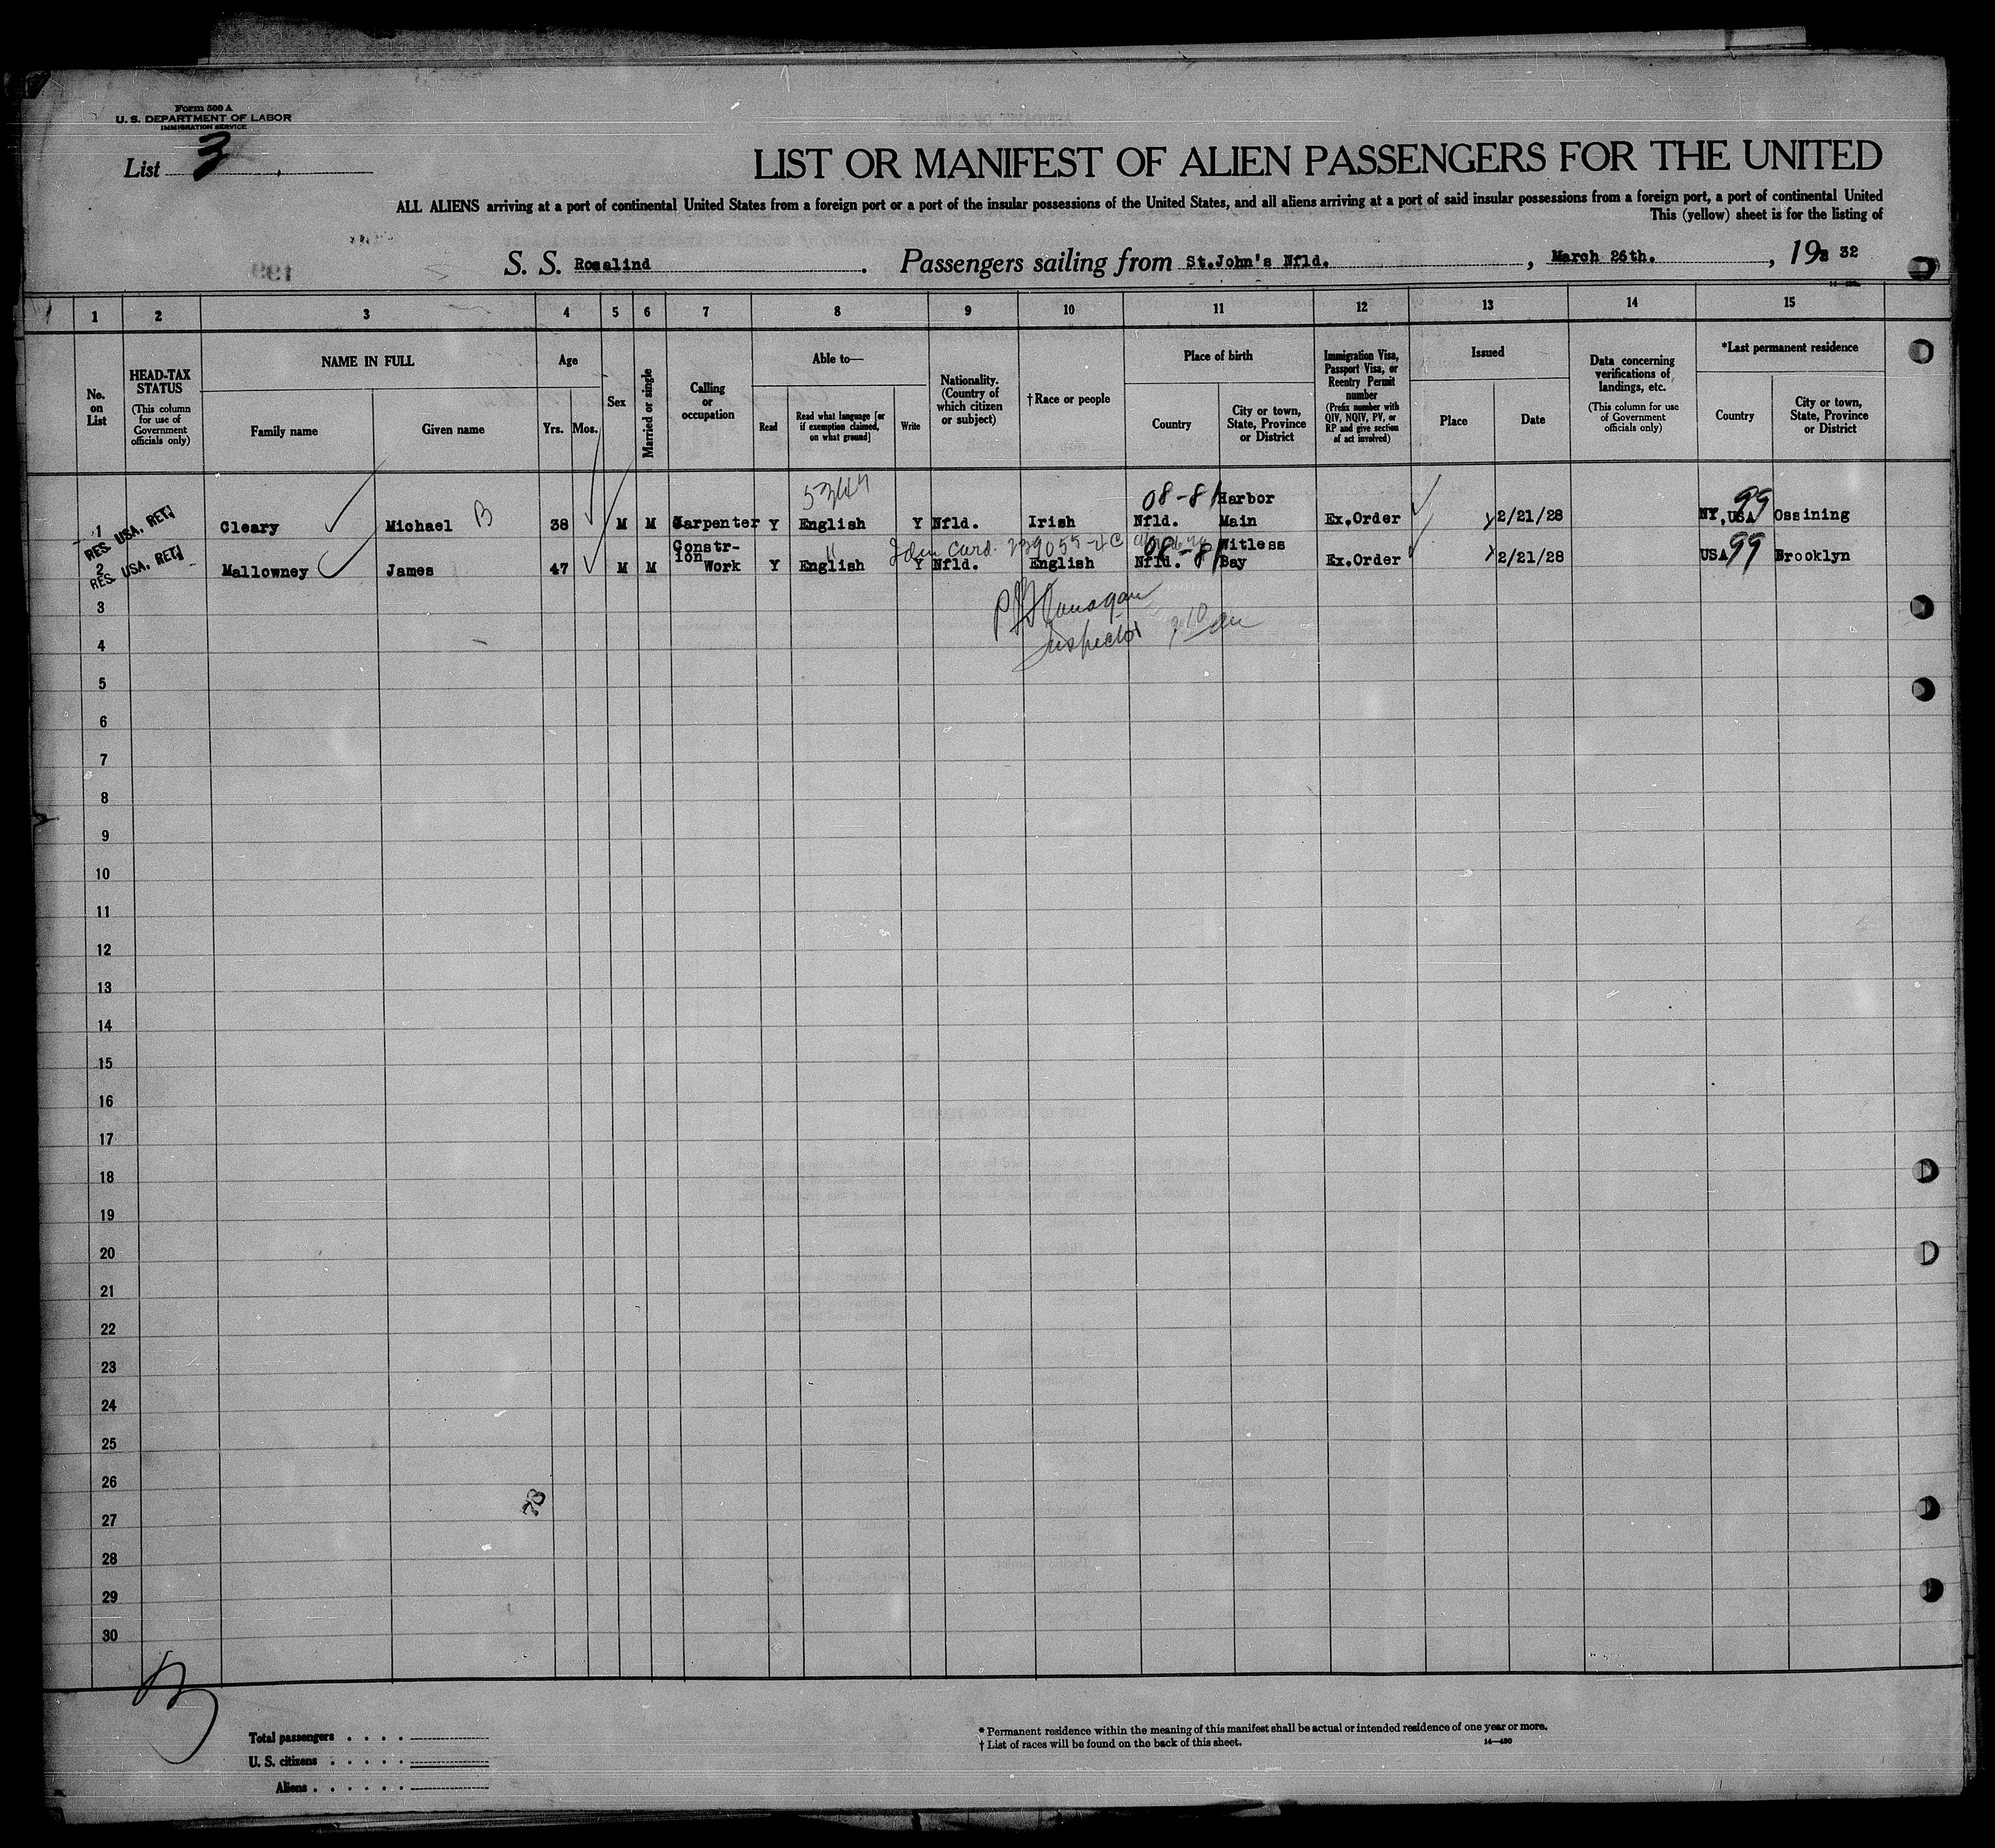 Form 500 A
U. S. DEPARTMENT OF LABOR
IMMIGRATION SERVICE
List 3
LIST OR MANIFEST OF ALIEN PASSENGERS FOR THE UNITED
ALL ALIENS arriving at a port of continental United States from a foreign port or a port of the insular possessions of the United States, and all aliens arriving at a port of said insular possessions from a foreign port, a port of continental United
This (yellow) sheet is for the listing of
S. S. Rosalind. Passengers sailing from St.John's Nfld., March 26th., 19 32
1 2 3 4 5 6 7 8 9 10 11 12 13 14 15
No. on List
HEAD-TAX STATUS
(This column for use of Government officials only)
NAME IN FULL
Family name
Given name
Age
Yrs. Mos.
Sex
Married or single
Calling or occupation
Able to—
Read
Read what language [or if exemption claimed, on what ground]
Write
Nationality. (Country of which citizen or subject)
†Race or people
Place of birth
Country
City or town, State, Province or District
Immigration Visa, Passport Visa, or Reentry Permit number
(Prefix number with QIV, NQIV, PV, or RP and give section of act involved)
Issued
Place
Date
Data concerning verifications of landings, etc.
(This column for use of Government officials only)
*Last permanent residence
Country
City or town, State, Province or District
08-81 Harbor 99
1 RES. USA. RET. Cleary Michael B 38 M M Carpenter Y English Y Nfld. Irish Nfld. Main Ex.Order 2/21/28 NY,USA Ossining
Constr- Iden Card. 08-81 Witless 99
2 RES. USA. RET. Mallowney James 47 M M ion Work Y English Y Nfld. English Nfld. Bay Ex.Order 2/21/28 USA Brooklyn
3
Inspector
4
5
6
7
8
9
10
11
12
13
14
15
16
17
18
19
20
21
22
23
24
25
26
27
28
29
30
Total passengers . . . .
U. S. citizens . . . . .
Aliens . . . . . .
* Permanent residence within the meaning of this manifest shall be actual or intended residence of one year or more.
† List of races will be found on the back of this sheet.
14—480